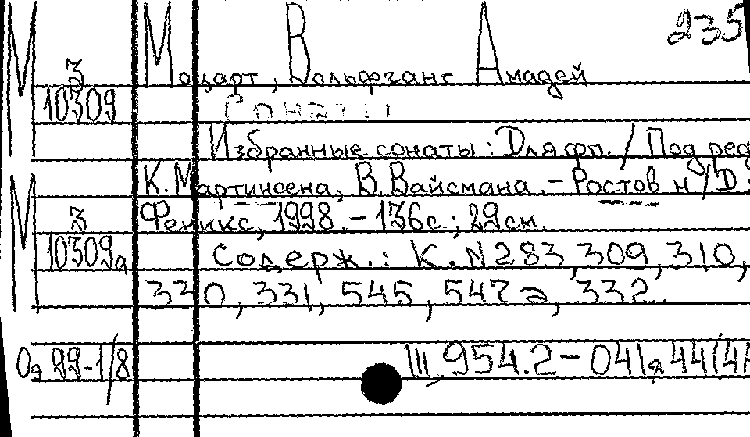 235
М З Моцарт, Вольфганг Амадей
10309 Сонаты
Избранные сонаты: Для фп. / Под ред
К. Мартинсена, В. Вайсмана. - Ростов н/Д:
М З Феникс, 1998. - 136с; 29см.
10309а Содерж.: К. N 283, 309, 310,
330, 331, 545, 547а, 332.
Од 99-1/8 Щ 954.2-041я44(4